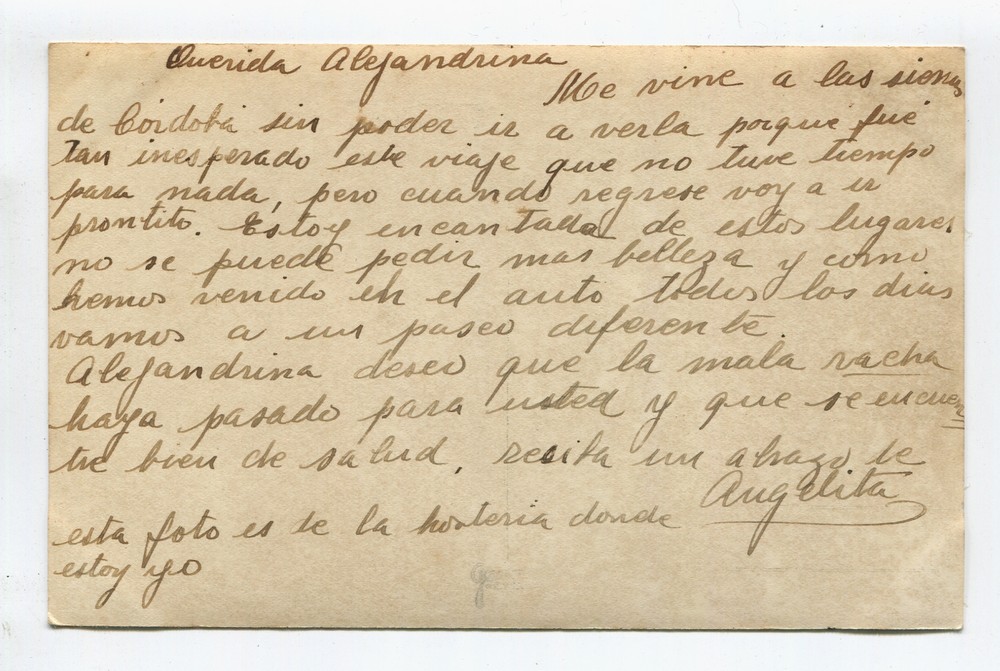 Querida Alejandrina
Me vine a las sierras
de Córdoba sin poder ir a verla porque fué
tan inesperado este viaje que no tuve tiempo
para nada, pero cuando regrese voy a ir
prontito. Estoy encantada de estos lugares
no se puede pedir mas belleza y como
hemos venido en el auto todos los dias
vamos a un paseo diferente.
Alejandrina deseo que la mala racha
haya pasado para usted y que se encuen=
tre bien de salud, reciba un abrazo de
Angelita
esta foto es de la hosteria donde
estoy yo